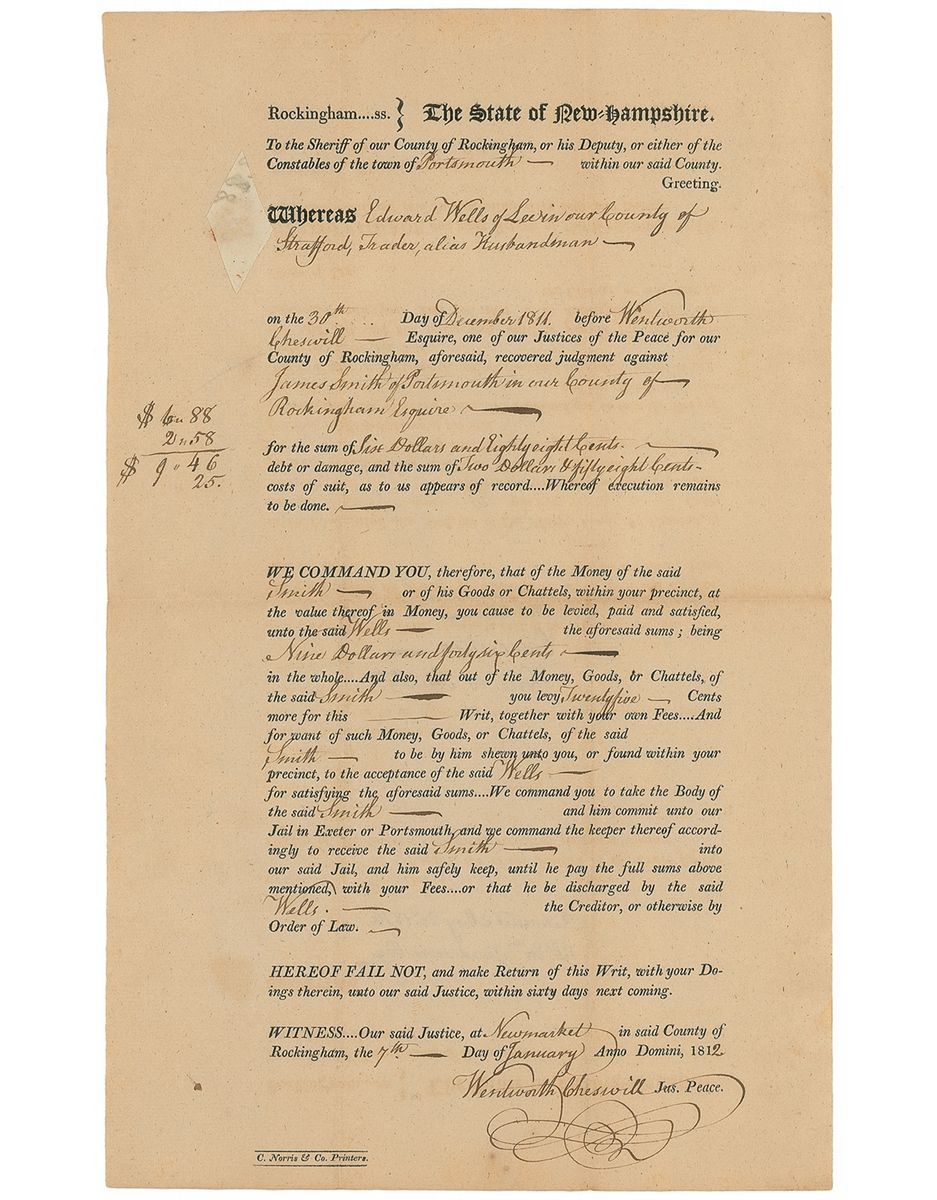 Rockingham....ss. } The State of New-Hampshire.
To the Sheriff of our County of Rockingham, or his Deputy, or either of the
Constables of the town of Portsmouth — within our said County.
Greeting.
Whereas Edward Wells of Lee in our County of
Strafford, Trader, alias Husbandman —
on the 30th ... Day of December 1811. before Wentworth
Cheswill — Esquire, one of our Justices of the Peace for our
County of Rockingham, aforesaid, recovered judgment against
James Smith of Portsmouth in our County of
Rockingham Esquire —
$ 6 " 88
2 " 58
$ 9 " 46
25.
for the sum of Six Dollars and Eighty eight Cents. —
debt or damage, and the sum of Two Dollars & fifty eight Cents -
costs of suit, as to us appears of record....Whereof execution remains
to be done. —
WE COMMAND YOU, therefore, that of the Money of the said
Smith — or of his Goods or Chattels, within your precinct, at
the value thereof in Money, you cause to be levied, paid and satisfied,
unto the said Wells — the aforesaid sums ; being
Nine Dollars and forty six Cents —
in the whole....And also, that out of the Money, Goods, or Chattels, of
the said Smith — you levy Twenty five — Cents
more for this — Writ, together with your own Fees....And
for want of such Money, Goods, or Chattels, of the said
Smith — to be by him shewn unto you, or found within your
precinct, to the acceptance of the said Wells —
for satisfying the aforesaid sums....We command you to take the Body of
the said Smith — and him commit unto our
Jail in Exeter or Portsmouth, and we command the keeper thereof accord-
ingly to receive the said Smith — into
our said Jail, and him safely keep, until he pay the full sums above
mentioned, with your Fees....or that he be discharged by the said
Wells. — the Creditor, or otherwise by
Order of Law. —
HEREOF FAIL NOT, and make Return of this Writ, with your Do-
ings therein, unto our said Justice, within sixty days next coming.
WITNESS....Our said Justice, at Newmarket in said County of
Rockingham, the 7th — Day of January Anno Domini, 1812.
Wentworth Cheswill Jus. Peace.
C. Norris & Co. Printers.